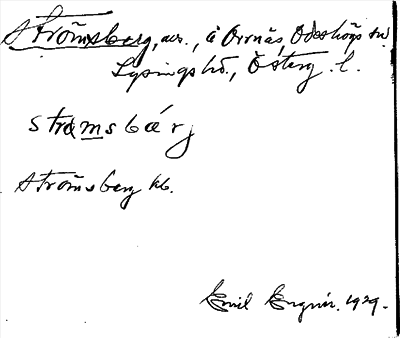 Strömsberg, avs., å Orrnäs, Ödeshögs sn.
Lysings hd., Österg. l.
stramsbárj
Strömsberg kb.
Emil Engnér. 1929.